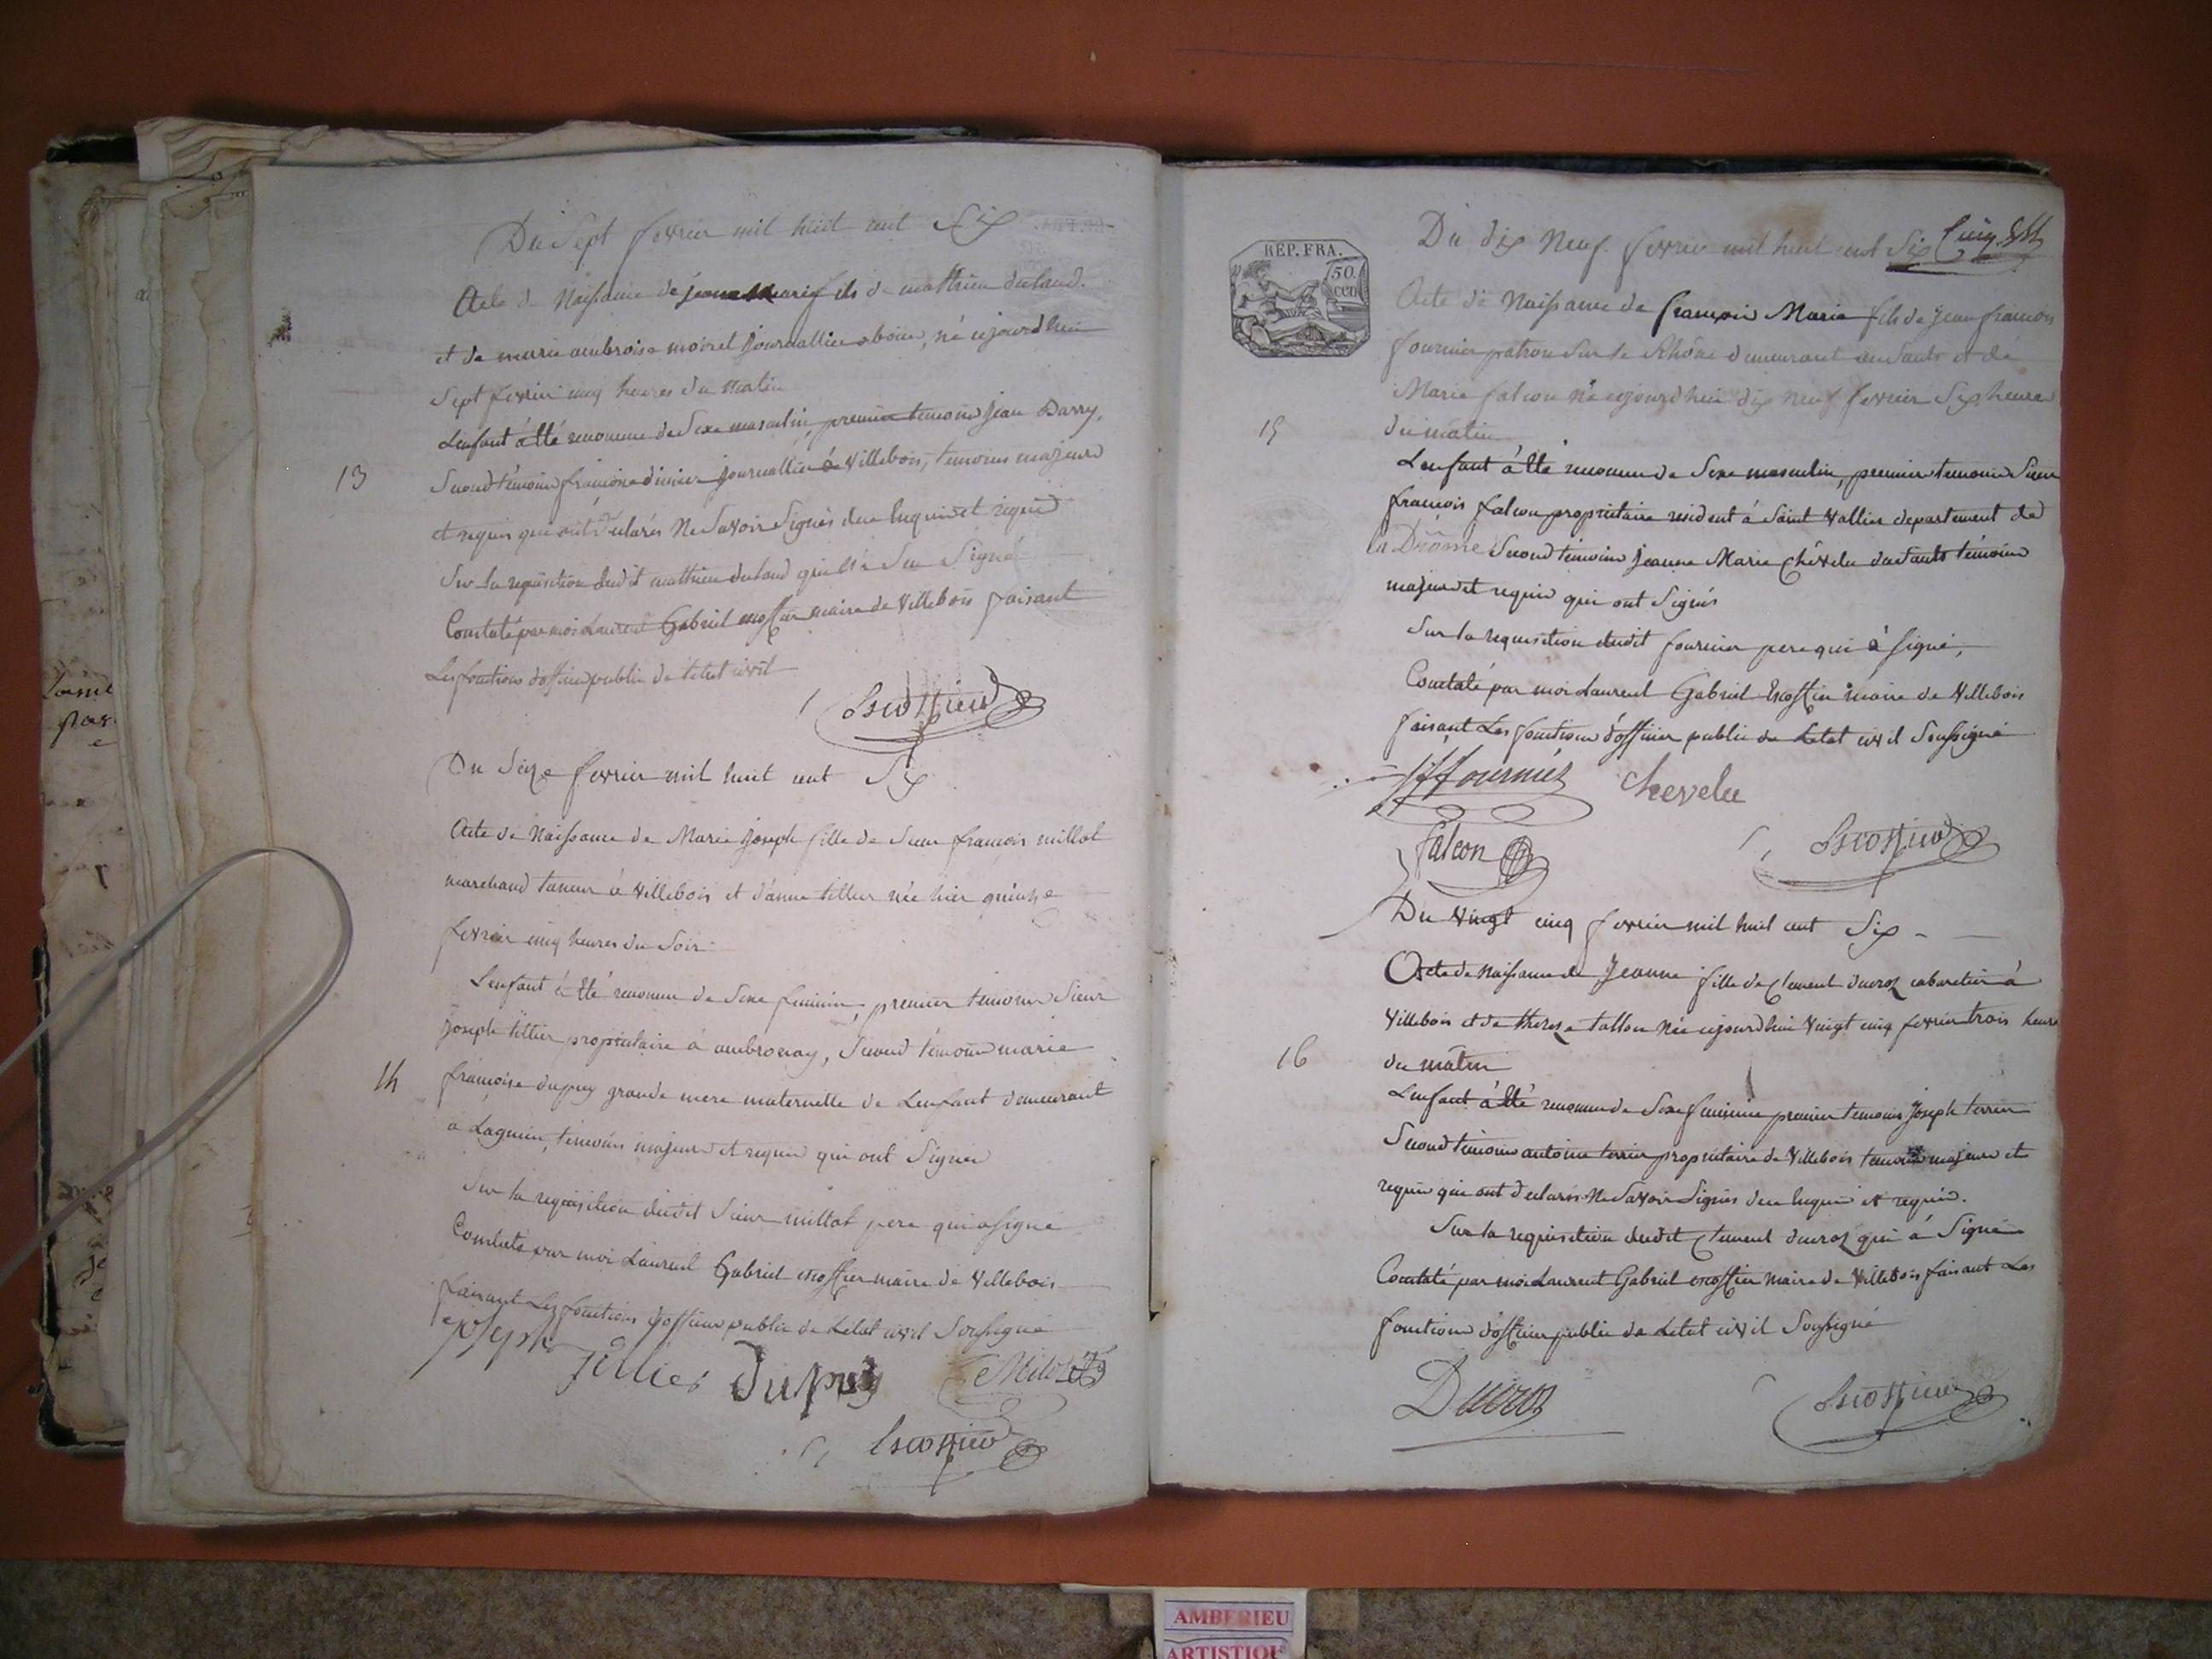 Du Sept fevrier mil huit cent Six
Acte de Naissance de jean Marie fils de mathieu duland
et de marie ambroise moiret journallier a bouis, né cejourdhui
Sept fevrier cinq heures du matin
Lenfant à été reconnu de Sexe masculin, premier temoins jean Darry,
13
Second témoins françois dinier journallier à Villebois, temoins majeurs
et requis qui ont déclarés Ne Savoir Signés de ce Enquis et requis
Sur la requisition dudit mathieu duland qui à Signé
Constaté par moi Laurent Gabriel escoffier maire de Villebois faisant
Les fonctions d'officier public de l'état civil
Escoffier
Du Seize fevrier mil huit cent Six
Acte de Naissance de Marie joseph fille de Sieur françois millot
marchand taneur à Villebois et d'anne tillier née hier quinze
fevrier cinq heures du Soir
Lenfant à été reconnu de Sexe feminin, premier temoins Sieur
joseph tillier propriétaire à ambronay, Second témoins marie
14
françoise dupuy grande mere maternelle de Lenfant demeurant
a Lagnieu, témoins majeurs et requis qui ont Signés
Sur la requisition dudit Sieur millot pere qui a Signé
Constaté par moi Laurent Gabriel escoffier maire de Villebois
faisant Les fonctions d'officier public de Létat civil Soussigné
joseph tillier dupuy Milot
Escoffier
REP. FRA.
50.
CEN
Du dix Neuf fevrier mil huit cent Six
Acte de Naissance de françois Marie fils de jean françois
fournier patron Sur le Rhône demeurant au Sault et de
Marie falcon né cejourdhui dix neuf fevrier Six heures
15
du matin
Lenfant à été reconnu de Sexe masculin, premier temoins Sieur
françois falcon propriétaire résident à Saint Vallier departement de
la Drôme Second témoins jeanne Marie Chevelu du Sault témoins
majeurs et requis qui ont Signés
Sur la requisition dudit fournier pere qui à Signé,
Constaté par moi Laurent Gabriel Escoffier maire de Villebois
faisant Les fonctions d'officier public de Létat civil Soussigné
fournier chevelu
falcon Escoffier
Du vingt cinq fevrier mil huit cent Six
Acte de Naissance de Jeanne fille de Clement ducroz cabaretier à
Villebois et de therese tallon Née cejourdhui Vingt cinq fevrier trois heures
16
du matin
Lenfant à été reconnu de Sexe feminin premier temoins joseph terrier
Second temoins antoine terrier propriétaire de Villebois temoins majeurs et
requis qui ont declarés Ne Savoir Signés de ce Enquis et requis.
Sur la requisition dudit Clement ducroz qui à Signé
Constaté par moi Laurent Gabriel escoffier maire de Villebois faisant Les
fonctions d'officier public de Létat civil Soussigné
Ducroz Escoffier
AMBERIEU
ARTISTIQUE